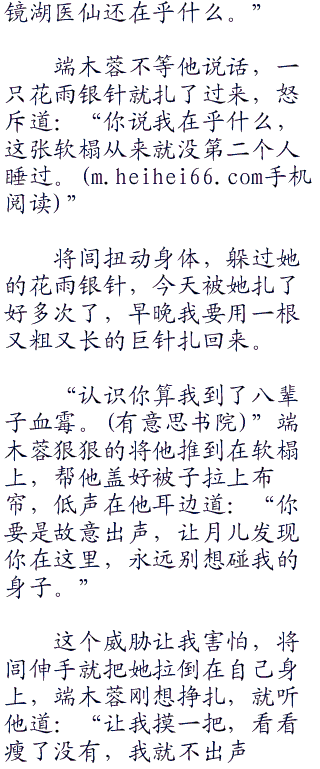 镜湖医仙还在乎什么。”
端木蓉不等他说话，一
只花雨银针就扎了过来，怒
斥道：“你说我在乎什么，
这张软榻从来就没第二个人
睡过。(m.heihei66.com手机
阅读)”
将闾扭动身体，躲过她
的花雨银针，今天被她扎了
好多次了，早晚我要用一根
又粗又长的巨针扎回来。
“认识你算我到了八辈
子血霉。(有意思书院)”端
木蓉狠狠的将他推到在软榻
上，帮他盖好被子拉上布
帘，低声在他耳边道：“你
要是故意出声，让月儿发现
你在这里，永远别想碰我的
身子。”
这个威胁让我害怕，将
闾伸手就把她拉倒在自己身
上，端木蓉刚想挣扎，就听
他道：“让我摸一把，看看
瘦了没有，我就不出声